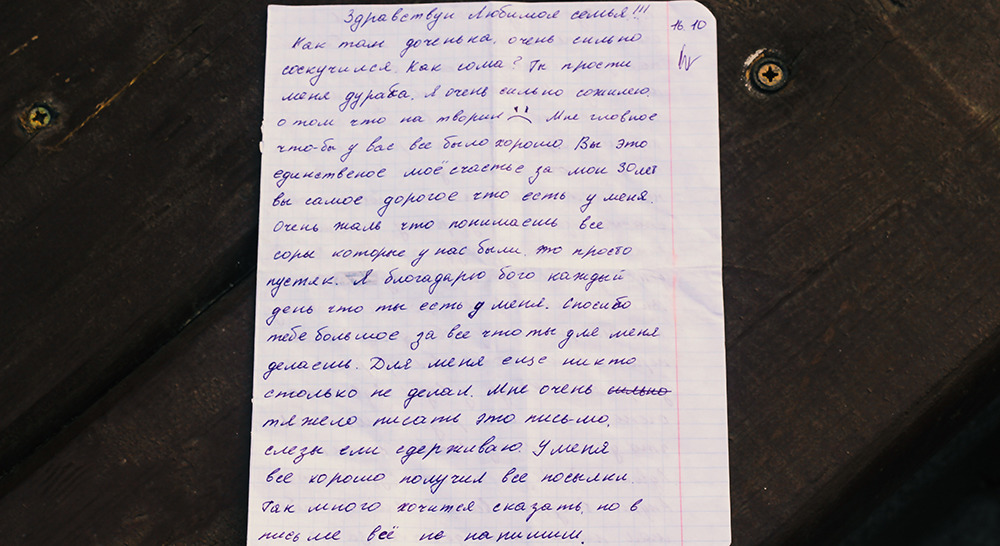 Здравствуй Любимая семья!!!
16.10
Как там доченька, очень сильно
соскучился. Как сома? Ты прости
меня дурака. Я очень сильно сожилею,
о том что на творил :( Мне главное
что-бы у вас все было хорошо Вы это
единственое моё счастье за мои 30 лет
вы самое дорогое что есть у меня.
Очень жаль что понимаешь все
соры которые у нас были, это просто
пустяк. Я блогадарю бого каждый
день что ты есть у меня. Спосибо
тебе большое за все что ты для меня
делаешь. Для меня еще никто
столько не делал. Мне очень сильно
тяжело писать это письмо,
слезы ели сдерживаю. У меня
все хорошо получил все посылки.
Так много хочится сказать, но в
письме всё не напишиш.